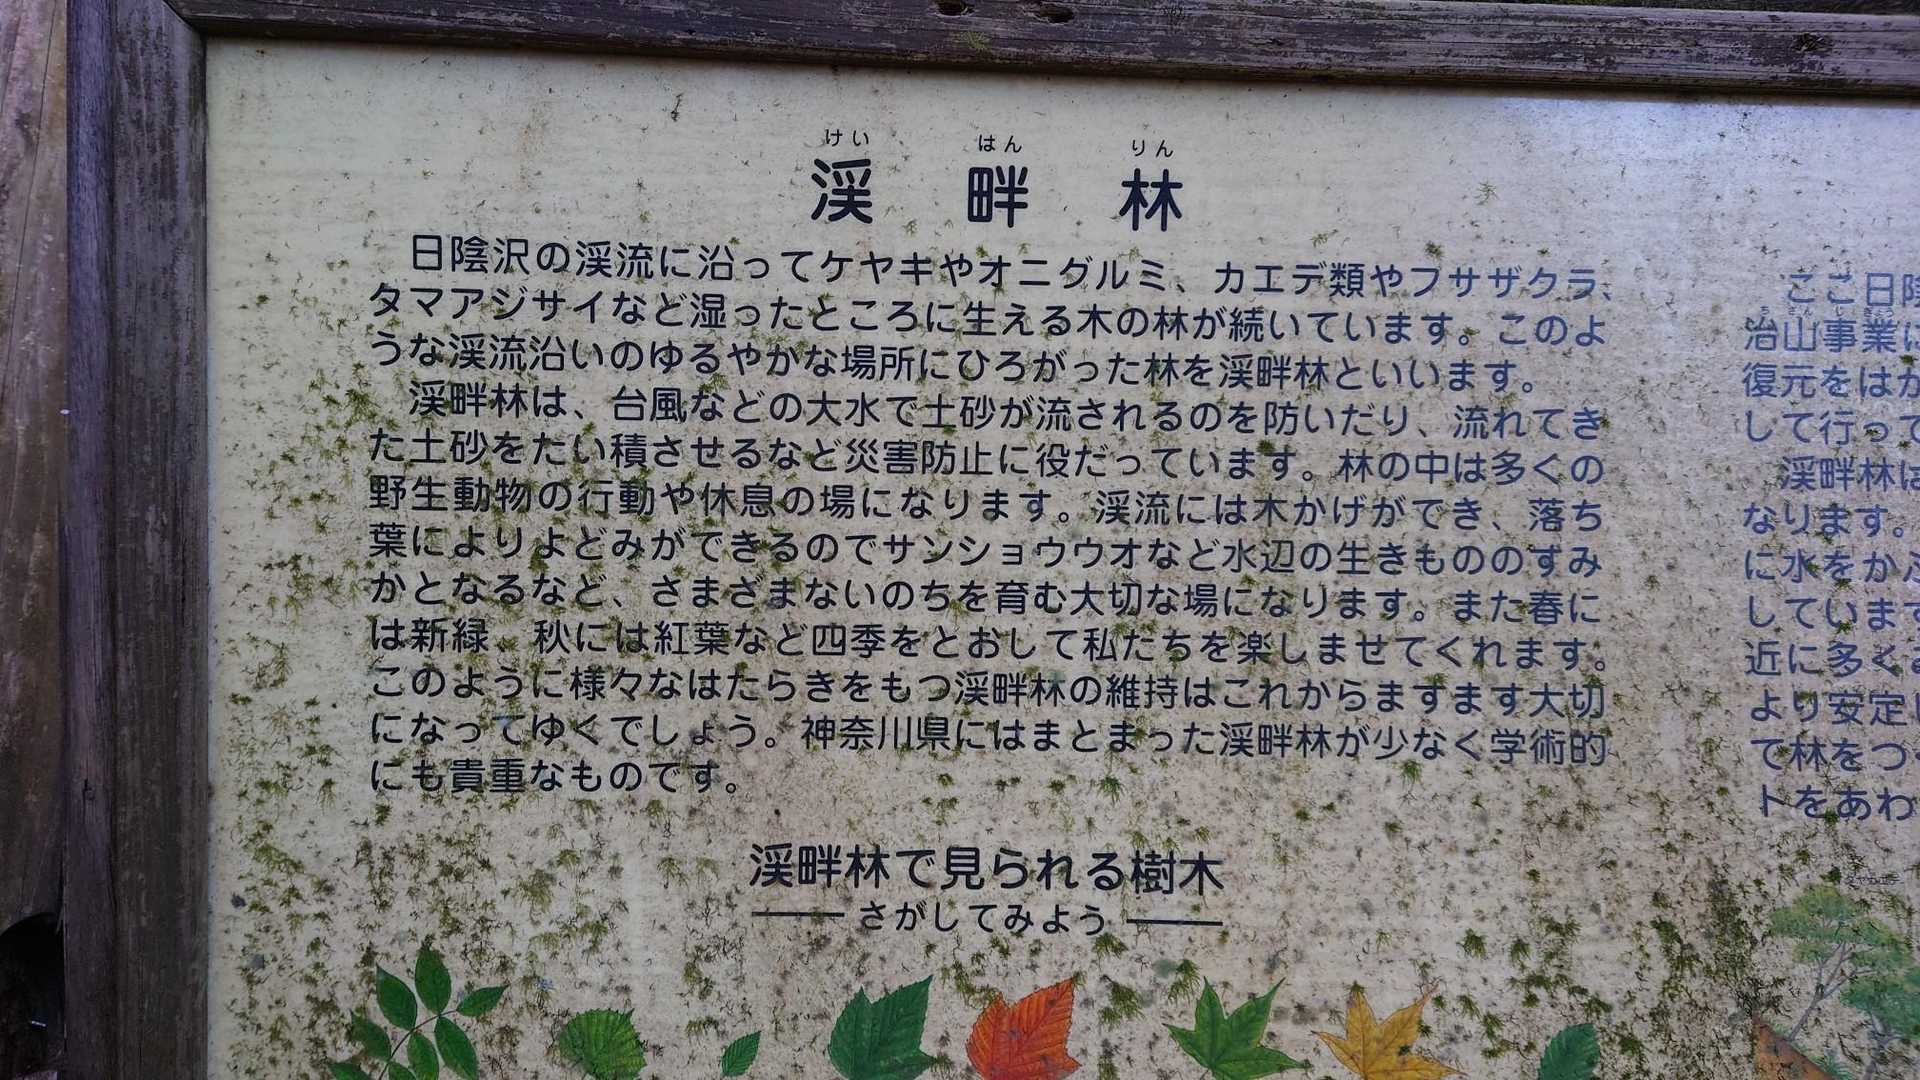 けい はん りん
渓 畔 林
日陰沢の渓流に沿ってケヤキやオニグルミ、カエデ類やフサザクラ、
タマアジサイなど湿ったところに生える木の林が続いています。このよ
うな渓流沿いのゆるやかな場所にひろがった林を渓畔林といいます。
渓畔林は、台風などの大水で土砂が流されるのを防いだり、流れてき
た土砂をたい積させるなど災害防止に役だっています。林の中は多くの
野生動物の行動や休息の場になります。渓流には木かげができ、落ち
葉によりよどみができるのでサンショウウオなど水辺の生きもののすみ
かとなるなど、さまざまないのちを育む大切な場になります。また春に
は新緑、秋には紅葉など四季をとおして私たちを楽しませてくれます。
このように様々なはたらきをもつ渓畔林の維持はこれからますます大切
になってゆくでしょう。神奈川県にはまとまった渓畔林が少なく学術的
にも貴重なものです。
渓畔林で見られる樹木
さがしてみよう
ここ日陰
治山事業に
復元をはか
して行って
渓畔林は
なります。
に水をかぶ
しています
近に多く
より安定し
て林をつ
トをあわ